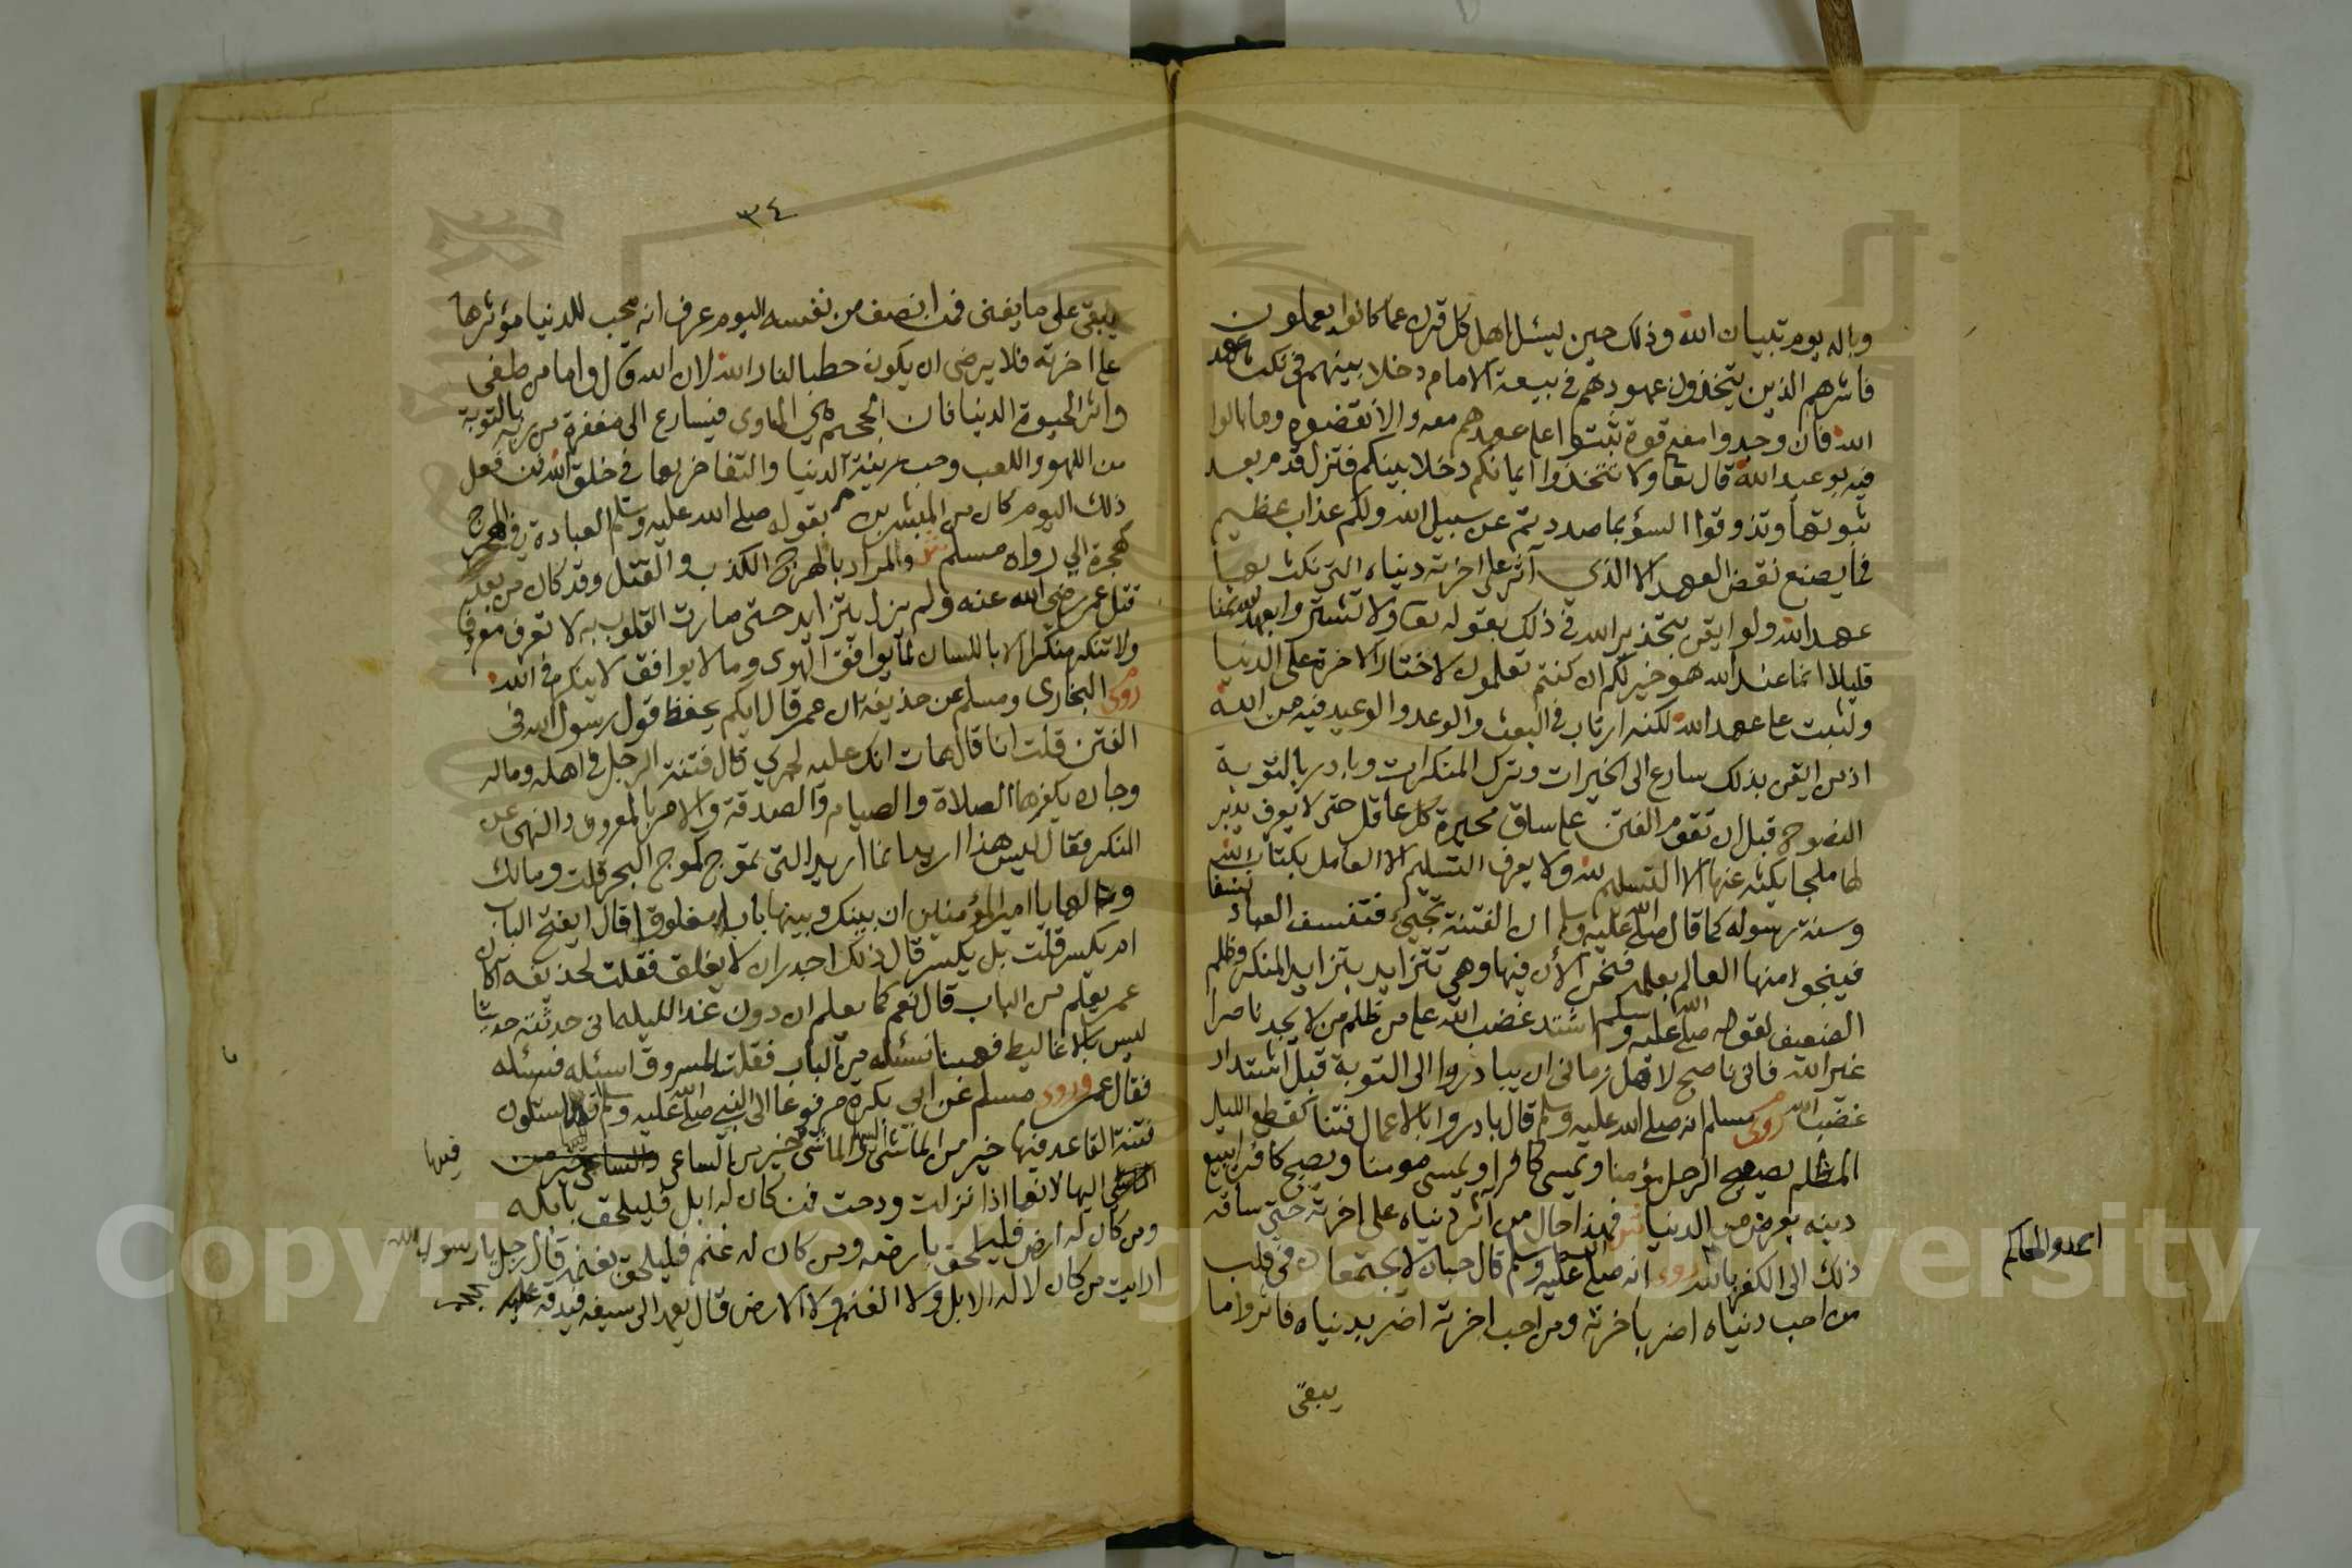 وباله يوم تبيان الله وذلك حين يسئل اهل كل قرن عما كانوا يعملون
فاشرهم الذين يتخذون عهودهم في بيعة الامام دخلا بينهم في نكث عهد
الله فان وجدوا معه قوة ثبتوا على عهدهم معه والا نقضوه وما بالوا
فيه بوعيد الله قال تعا ولا تتخذوا ايمانكم دخلا بينكم فتزل قدم بعد
ثبوتها وتذوقوا السؤ بما صددتم عن سبيل الله ولكم عذاب عظيم
فما يصنع نقض العهد الا الذي آثر على اخرته دنياه التي نكث بها
عهد الله ولو ايقن بتحذير الله في ذلك بقوله تعا ولا تشتروا بعهد الله ثمنا
قليلا انما عند الله هو خير لكم ان كنتم تعلمون لاختار الاخرة على الدنيا
ولثبت على عهد الله لكنه ارتاب في البعث والوعد والوعيد فيه من الله
اذ من ايقن بذلك سارع الى الخيرات وترك المنكرات وبادر بالتوبة
النصوح قبل ان تقوم الفتن على ساق محيرة كل عاقل حتى لا يعرف يدبر
لها ملجا يكنه عنها الا التسليم لله ولا يعرف التسليم الا العامل بكتاب الله
وسنة رسوله كما قال صلى الله عليه وسلم ان الفتنة تجيئ فتنسف العباد نسفا
فينجو منها العالم بعلمه فنحن الأن فيها وهي تتزايد بتزايد المنكر وظلم
الضعيف لقوله صلى الله عليه وسلم اشتد غضب الله على من ظلم من لا يجد ناصرا
غير الله فاني ناصح لاهل زماني ان يبادروا الى التوبة قبل اشتداد
غضب الله روى مسلم انه صلى الله عليه وسلم قال بادروا بالاعمال فتنا كقطع الليل
المظلم يصبح الرجل مؤمنا ويمسي كافرا ويمسي مومنا ويصبح كافرا يبيع
دينه بعرض من الدنيا فهذا حال من آثر دنياه على اخرته حتى ساقه
ذلك الى الكفر بالله روى انه صلى الله عليه وسلم قال حبان لا يجتمعان في قلب
من احب دنياه اضر باخرته ومن احب اخرته اضر بدنياه فاثروا ما
يبقى
٣٤
يبقى على ما يفنى فمن انصف من نفسه اليوم عرف انه محب للدنيا مؤثرها
على اخرته فلا يرضى ان يكون حطبا لنار الله لان الله قال واما من طغى
واثر الحيوة الدنيا فان الجحيم هي الماوى فيسارع الى مغفرة من ربه بالتوبة
من اللهو واللعب وحب زينة الدنيا والتفاخر بها في خلق الله فمن فعل
ذلك اليوم كان من المبشرين بقوله صلى الله عليه وسلم العبادة في الهرج
كهجرة الي رواه مسلم والمراد بالهرج الكذب والقتل وقد كان من بعد
قتل عمر رضي الله عنه ولم يزل يتزايد حتى صارت القلوب به لا تعرف معروفا
ولا تنكر منكرا الا باللسان لما يوافق الهوى وما لا يوافق لا ينكر في الله
روى البخارى ومسلم عن حذيفة ان عمر قال ايكم يحفظ قول رسول الله في
الفتن قلت انا قال هات انك عليه لجري قال فتنة الرجل في اهله وماله
وجاره يكفرها الصلاة والصيام والصدقة والامر بالمعروف والنهى عن
المنكر فقال ليس هذا اريد انما اريد التي تموج كموج البحر قلت ومالك
ومالها يا امير المؤمنين ان بينك وبينها بابا مغلوقا قال ايفتح الباب
ام يكسر قلت بل يكسر قال ذلك اجدر ان لا يغلق فقلت لحذيفه اكان
عمر يعلم من الباب قال نعم كما يعلم ان دون غد الليلة اني حدثته حديثا
ليس بالاغاليط فهبنا نسئله من الباب فقلت لمسروق اسئله فسئله
فقال عمر وروى مسلم عن ابي بكرة مرفوعا الى النبي صلى الله عليه وسلم ستكون
فتنة القاعد فيها خير من الماشي فيها والماشي خير من الساعي
اليها الا فاذا نزلت وقعت فمن كان له ابل فليلحق بابله
ومن كان له ارض فليلحق بارضه ومن كان له غنم فليلحق بغنمه قال رجل يا رسول الله
ارايت من كان لا له الابل ولا الغنم ولا الارض قال يعمد الى سيفه فيدقه عليه
فيها
Copyright © King Saud University